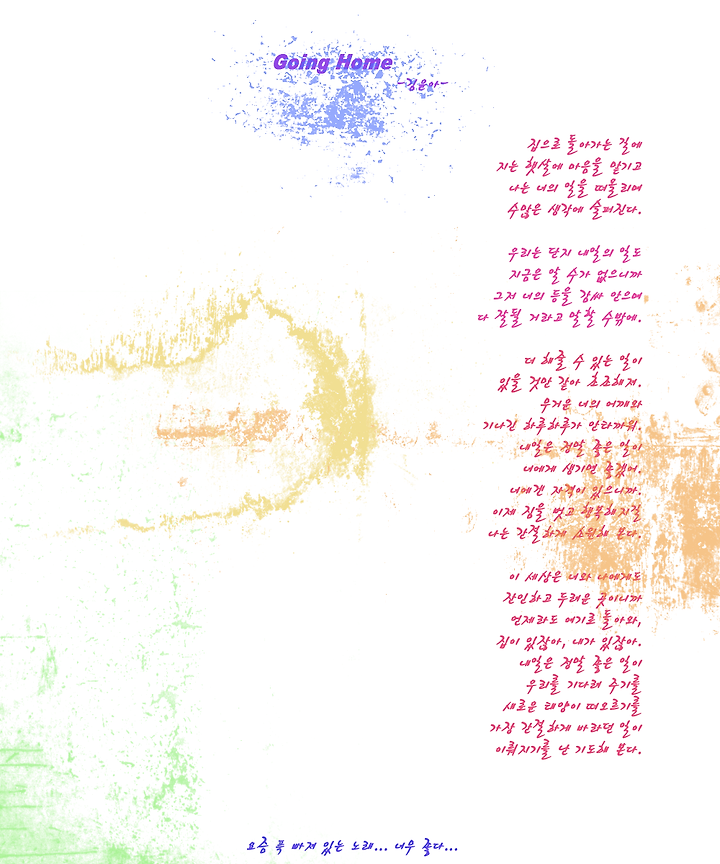 Going Home
-김윤아-
집으로 돌아가는 길에
지는 햇살에 마음을 맡기고
나는 너의 일을 떠올리며
수많은 생각에 슬퍼진다.
우리는 단지 내일의 일도
지금은 알 수가 없으니까
그저 너의 등을 감싸 안으며
다 잘될 거라고 말할 수밖에.
더 해줄 수 있는 일이
있을 것만 같아 초조해져.
무거운 너의 어깨와
기나긴 하루하루가 안타까워.
내일은 정말 좋은 일이
너에게 생기면 좋겠어.
너에겐 자격이 있으니까.
이제 짐을 벗고 행복해지길
나는 간절하게 소원해 본다.
이 세상은 너와 나에게도
잔인하고 두려운 곳이니까
언제라도 여기로 돌아와,
집이 있잖아, 내가 있잖아.
내일은 정말 좋은 일이
우리를 기다려 주기를
새로운 태양이 떠오르기를
가장 간절하게 바라던 일이
이뤄지기를 난 기도해 본다.
요즘 푹 빠져 있는 노래... 너무 좋다...